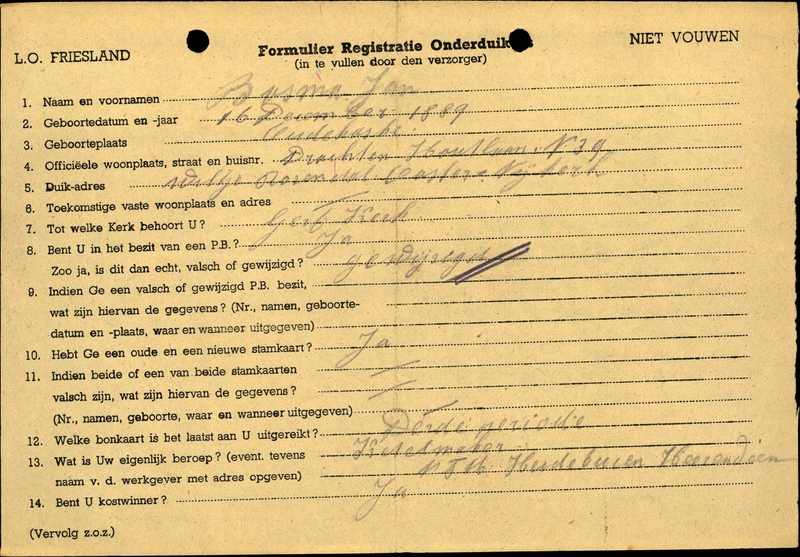 L.O. FRIESLAND
Formulier Registratie Onderduikers
NIET VOUWEN
(in te vullen door den verzorger)
1. Naam en voornamen Bosma Jan
2. Geboortedatum en -jaar 16 December 1889
3. Geboorteplaats Oudehaske
4. Officiëele woonplaats, straat en huisnr. Drachten Houtlaan N 39
5. Duik-adres Rozendal Nijkerk
6. Toekomstige vaste woonplaats en adres
7. Tot welke Kerk behoort U? Geref Kerk
8. Bent U in het bezit van een P.B.? Ja
Zoo ja, is dit dan echt, valsch of gewijzigd? gewijzigd
9. Indien Ge een valsch of gewijzigd P.B. bezit,
wat zijn hiervan de gegevens? (Nr., namen, geboorte-
datum en -plaats, waar en wanneer uitgegeven)
10. Hebt Ge een oude en een nieuwe stamkaart? Ja
11. Indien beide of een van beide stamkaarten
valsch zijn, wat zijn hiervan de gegevens?
(Nr., namen, geboorte, waar en wanneer uitgegeven)
12. Welke bonkaart is het laatst aan U uitgereikt? Derde periode
13. Wat is Uw eigenlijk beroep? (event. tevens Ketelmaker
naam v. d. werkgever met adres opgeven) NTM
14. Bent U kostwinner? Ja
(Vervolg z.o.z.)